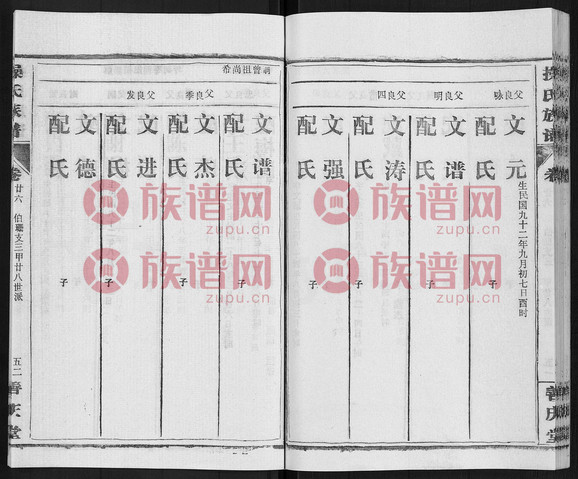 操氏族谱
父良咏
文元
生民国九十二年九月初七日酉时
配氏
父良明
文谱
配氏
子
文涛
配氏
子
父良四
文强
配氏
子
嗣曾祖尚希
文谱
配氏
子
父良季
文杰
配氏
子
父良发
文进
配氏
子
文德
配氏
子
操氏族谱
卷廿六
伯珊支三甲廿八世派
五二
善庆堂
善庆堂
族谱网
zupu.cn
族谱网
zupu.cn
族谱网
zupu.cn
族谱网
zupu.cn